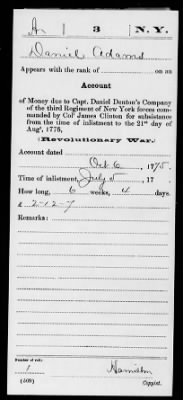 3 N.Y.
Daniel Adams
Appears with the rank of on an
Account
of Money due to Capt. Daniel Denton's Company
of the third Regiment of New York forces com-
manded by Col James Clinton for subsistance
from the time of inlistment to the 21st day of
Augt, 1775,
(Revolutionary War.)
Account dated
Oct 6, 1775.
Time of inlistment, July 5, 17 .
How long, 6 weeks, 4 days.
£ 2-12-7
Remarks:
Number of roll:
1
(509)
Copyist.